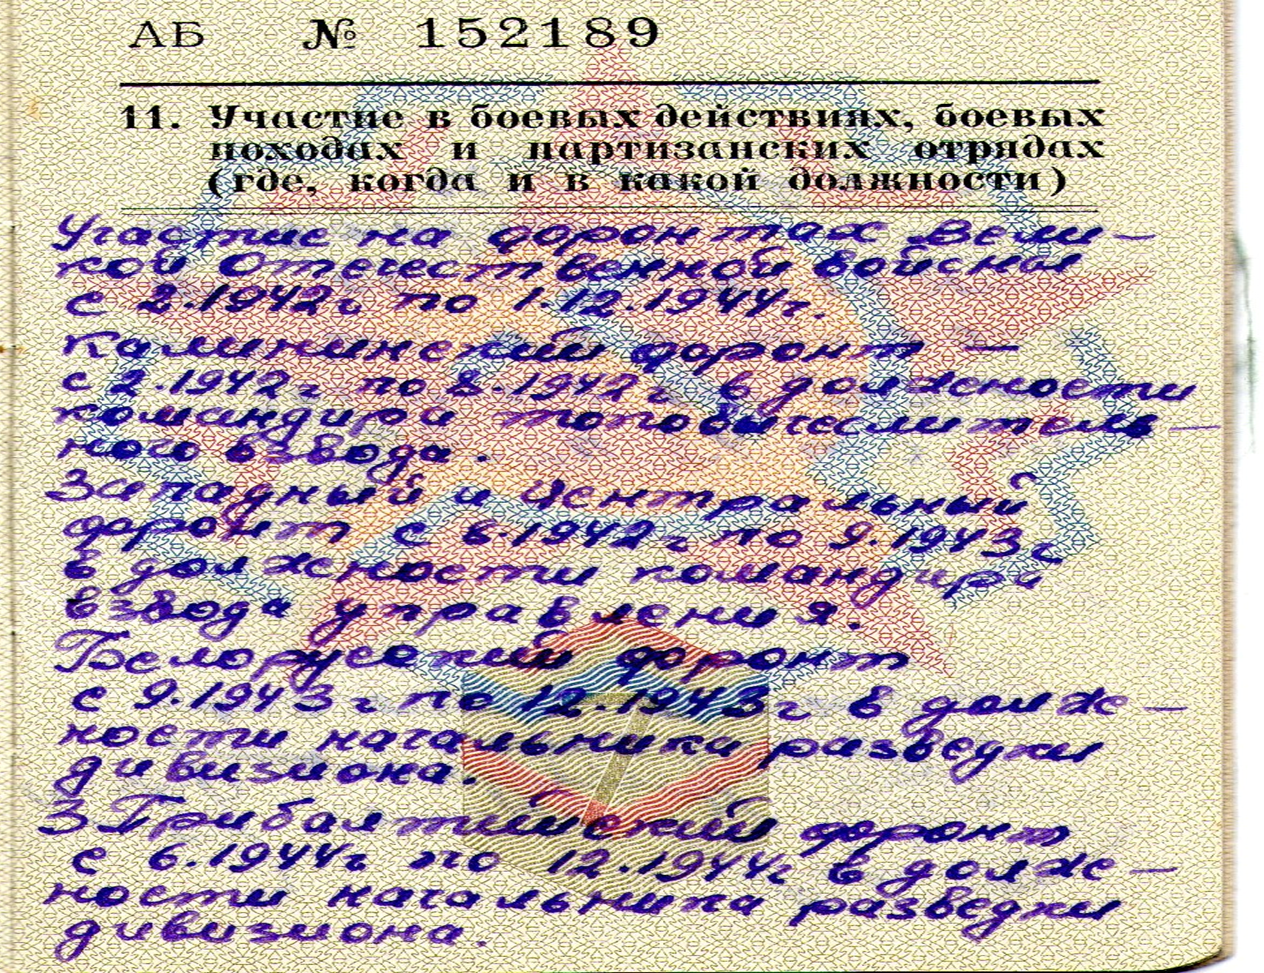 АБ № 152189
11. Участие в боевых действиях, боевых
походах и партизанских отрядах
(где, когда и в какой должности)
Участие на фронтах Вели-
кой Отечественной войсны
с 2.1942г по 1.12.1944г.
Калининский фронт —
с 2.1942г по 8.1942г в должности
командира топовычеслитель-
ного взвода.
Западный и Центральный
фронт с 8.1942г по 9.1943г
в должности командира
взвода управления.
Белорусский фронт
с 9.1943г по 12.1943г в долж-
ности начальника разведки
дивизиона.
3 Прибалтийский фронт
с 6.1944г по 12.1944г в долж-
ности начальника разведки
дивизиона.